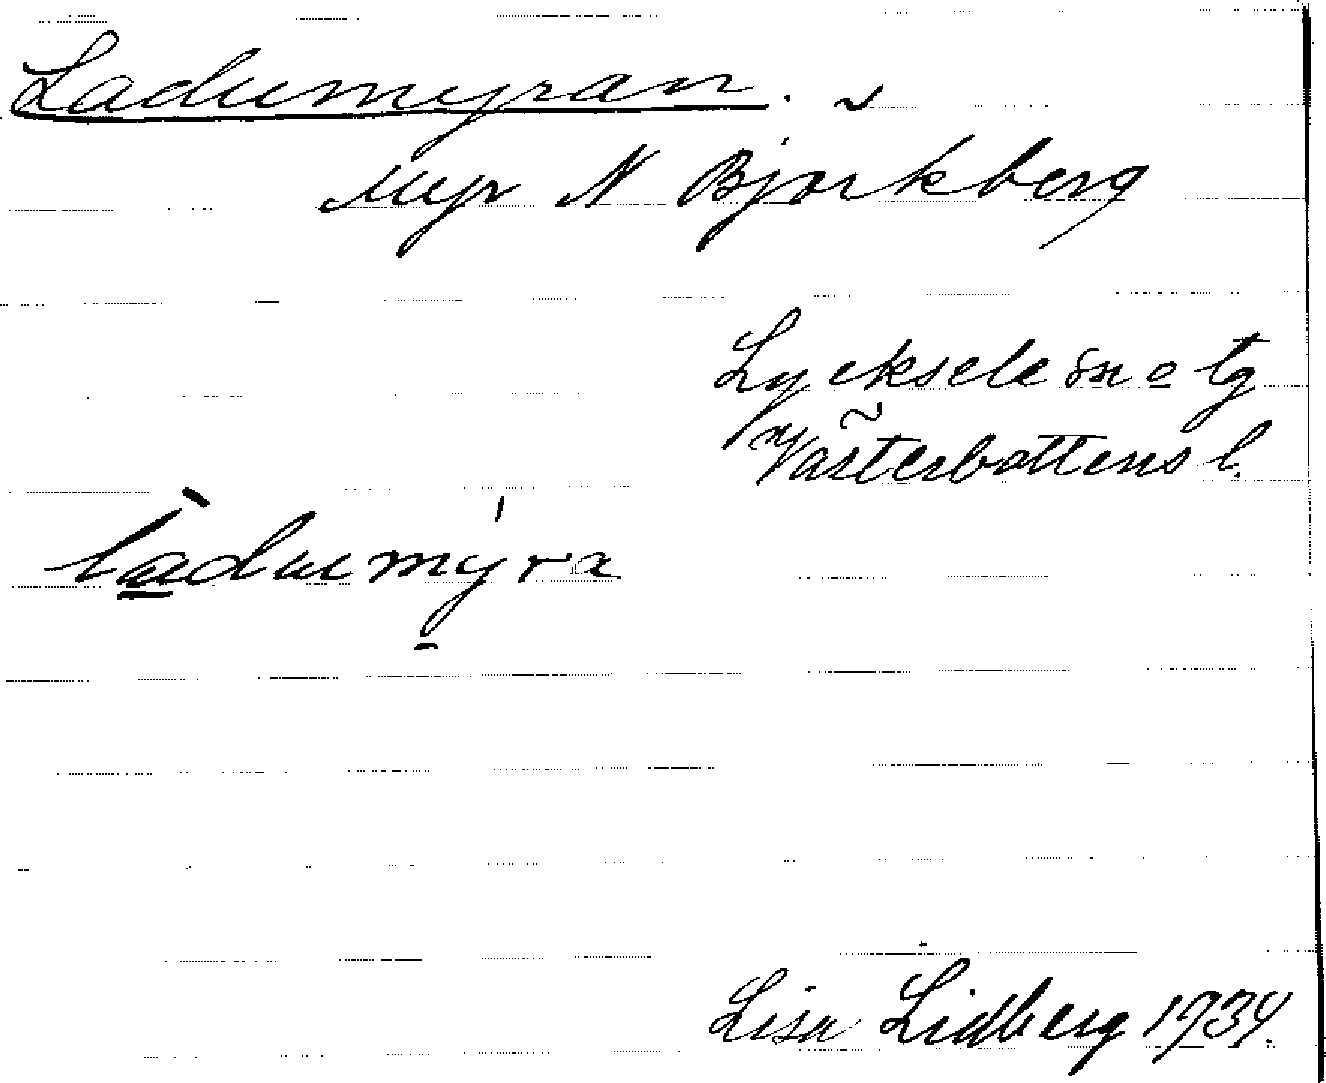 Ladumyran. ~
Myr N Björkberg
Lycksele sn o tg
Västerbottens l.
làdumýra
Lisa Lidberg 1934.